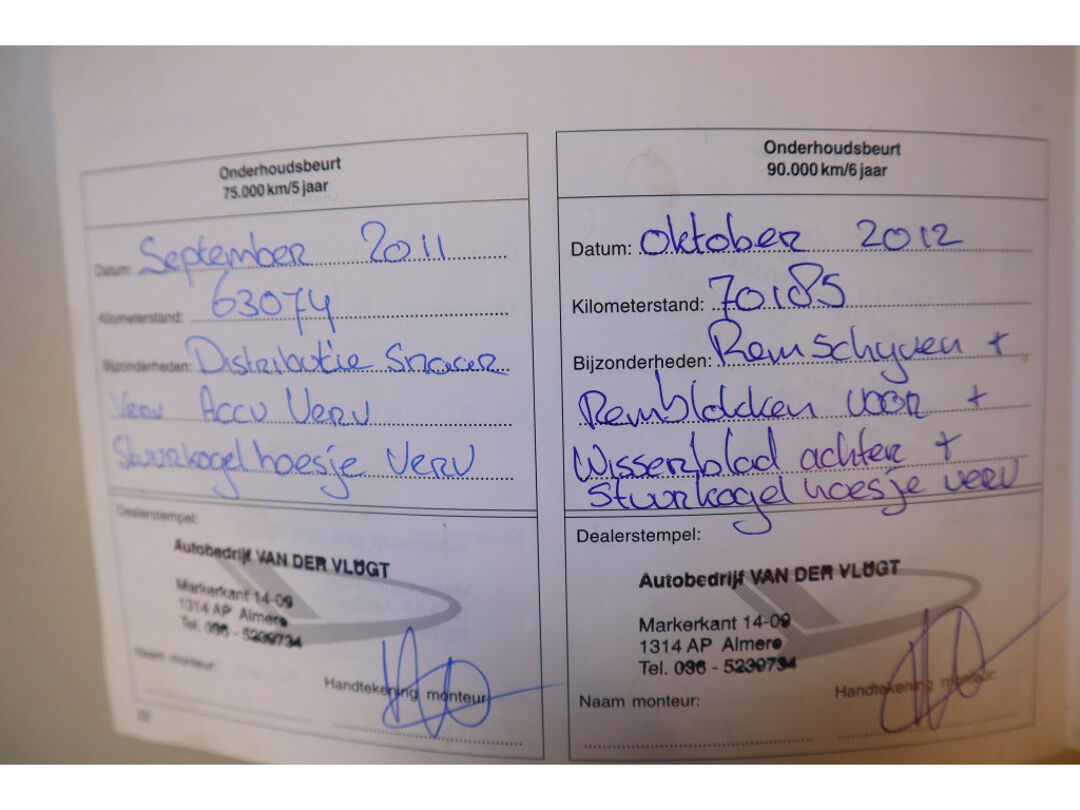 Onderhoudsbeurt
75.000 km/5 jaar
Datum: September 2011
Kilometerstand: 63074
Bijzonderheden: Distributie Snaar
Verv Accu Verv
Stuurkogel hoesje Verv
Dealerstempel:
Autobedrijf VAN DER VLUGT
Markerkant 14-09
1314 AP Almere
Tel. 036 - 5239734
Naam monteur:
Handtekening monteur:
Onderhoudsbeurt
90.000 km/6 jaar
Datum: Oktober 2012
Kilometerstand: 70185
Bijzonderheden: Remschyven +
Remblokken voor +
Wisserblad achter +
Stuurkogel hoesje verv
Dealerstempel:
Autobedrijf VAN DER VLUGT
Markerkant 14-09
1314 AP Almere
Tel. 036 - 5239734
Naam monteur:
Handtekening monteur: